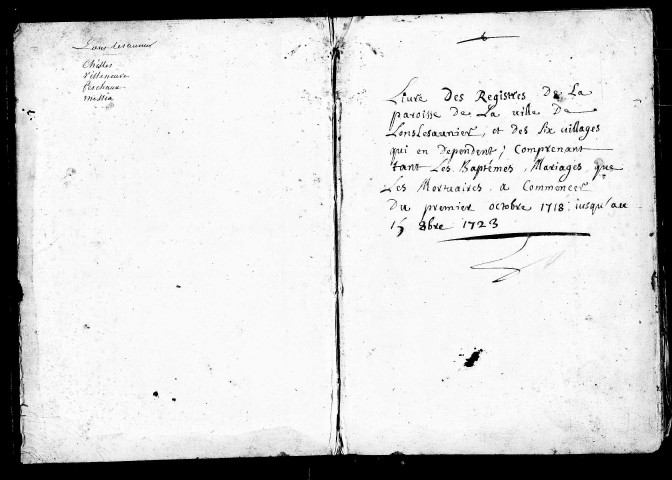 Lons le saunier
Chilles
Villeneuve
Perchaux
Messia
6
Livre Des Registres De La
paroisse de La ville De
Lonslesaunier, et des six villages
qui en dependent, Comprenant
tant Les Baptémes, Mariages que
Les Mortuaires a Commencer
Du premier octobre 1718 iusqu'au
15 8bre 1723